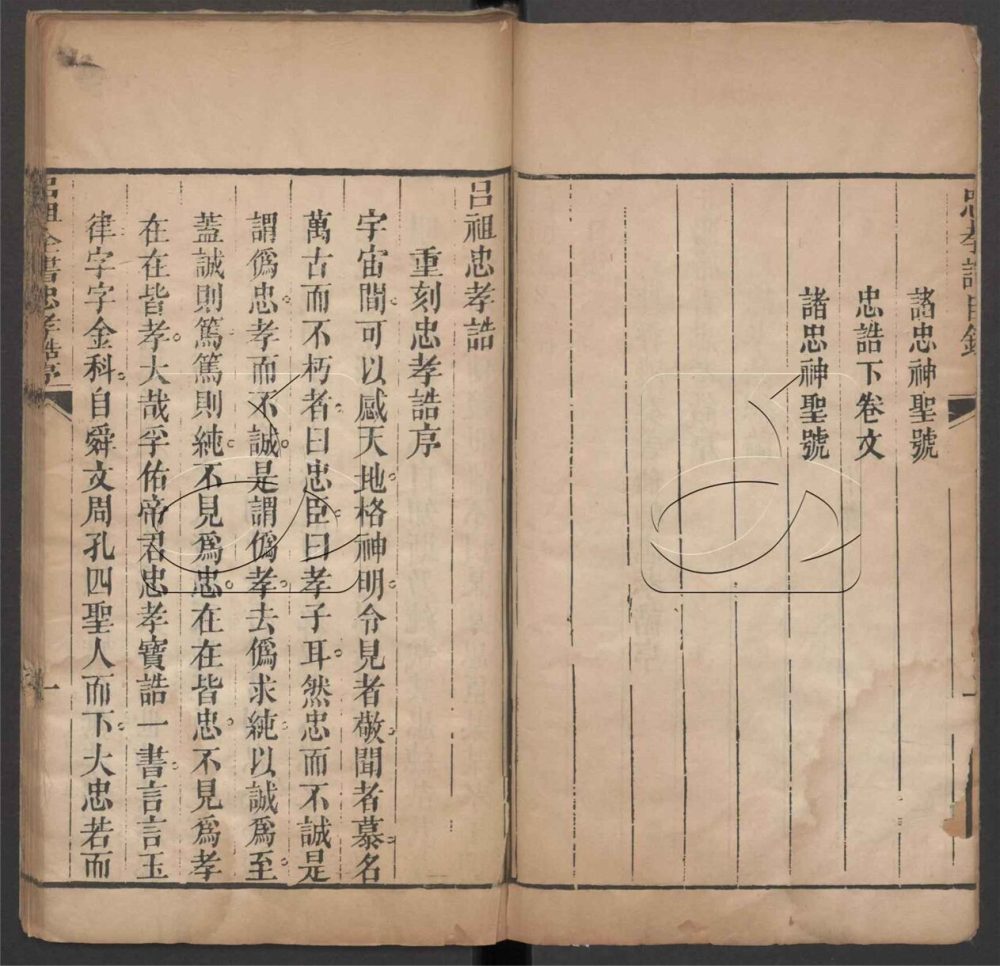 忠孝誥目錄
諸忠神聖號
忠誥下卷文
諸忠神聖號
呂祖忠孝誥
重刻忠孝誥序
宇宙間。可以感天地格神明。令見者敬。聞者慕。名
萬古而不朽者。曰忠臣。曰孝子耳。然忠而不誠是
謂僞忠。孝而不誠。是謂僞孝。去僞求純。以誠爲至。
蓋誠則篤。篤則純。不見爲忠。在在皆忠。不見爲孝
在在皆孝。大哉孚佑帝君忠孝寶誥一書。言言玉
律字字金科。自舜文周孔四聖人而下。大忠若而
呂祖全書忠孝誥序
一